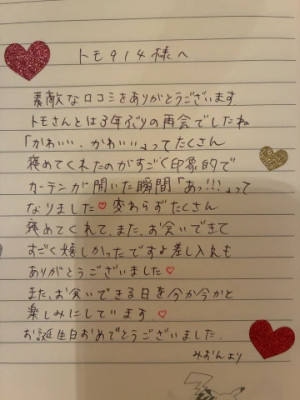 トモ914様へ
素敵な口コミをありがとうございます
トモさんとは3年ぶりの再会でしたね
「かわいい、かわいい」ってたくさん
褒めてくれたのがすごく印象的で
カーテンが開いた瞬間「あっ!!!」って
なりました♡変わらずたくさん
褒めてくれて、また、お会いできて
すごく嬉しかったですよ差し入れも
ありがとうございました♡
また、お会いできる日を今か今かと
楽しみにしています♡
お誕生日おめでとうございました.
みおんより